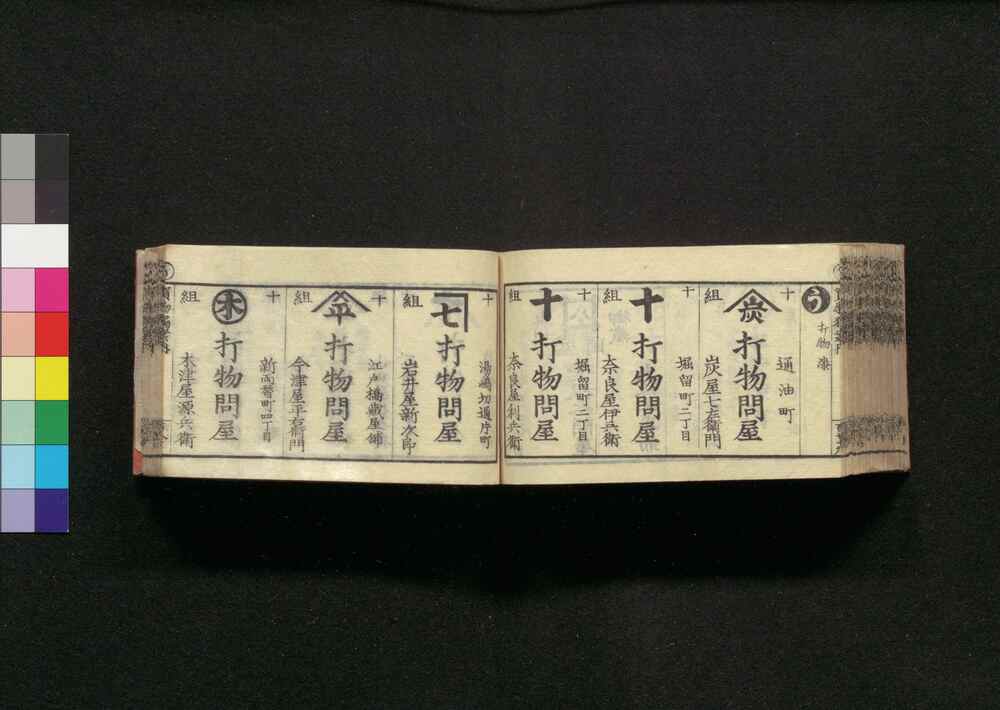 う
打物 漆
十組
通油町
炭
打物問屋
炭屋七左衛門
十組
堀留町二丁目
十
打物問屋
奈良屋伊兵衛
十組
堀留町二丁目
十
打物問屋
奈良屋利兵衛
十組
湯嶋切通片町
七
打物問屋
岩井屋新次郎
十組
江戸橋蔵屋舗
平
打物問屋
今津屋平右衛門
十組
新両替町四丁目
木
打物問屋
木津屋源兵衛